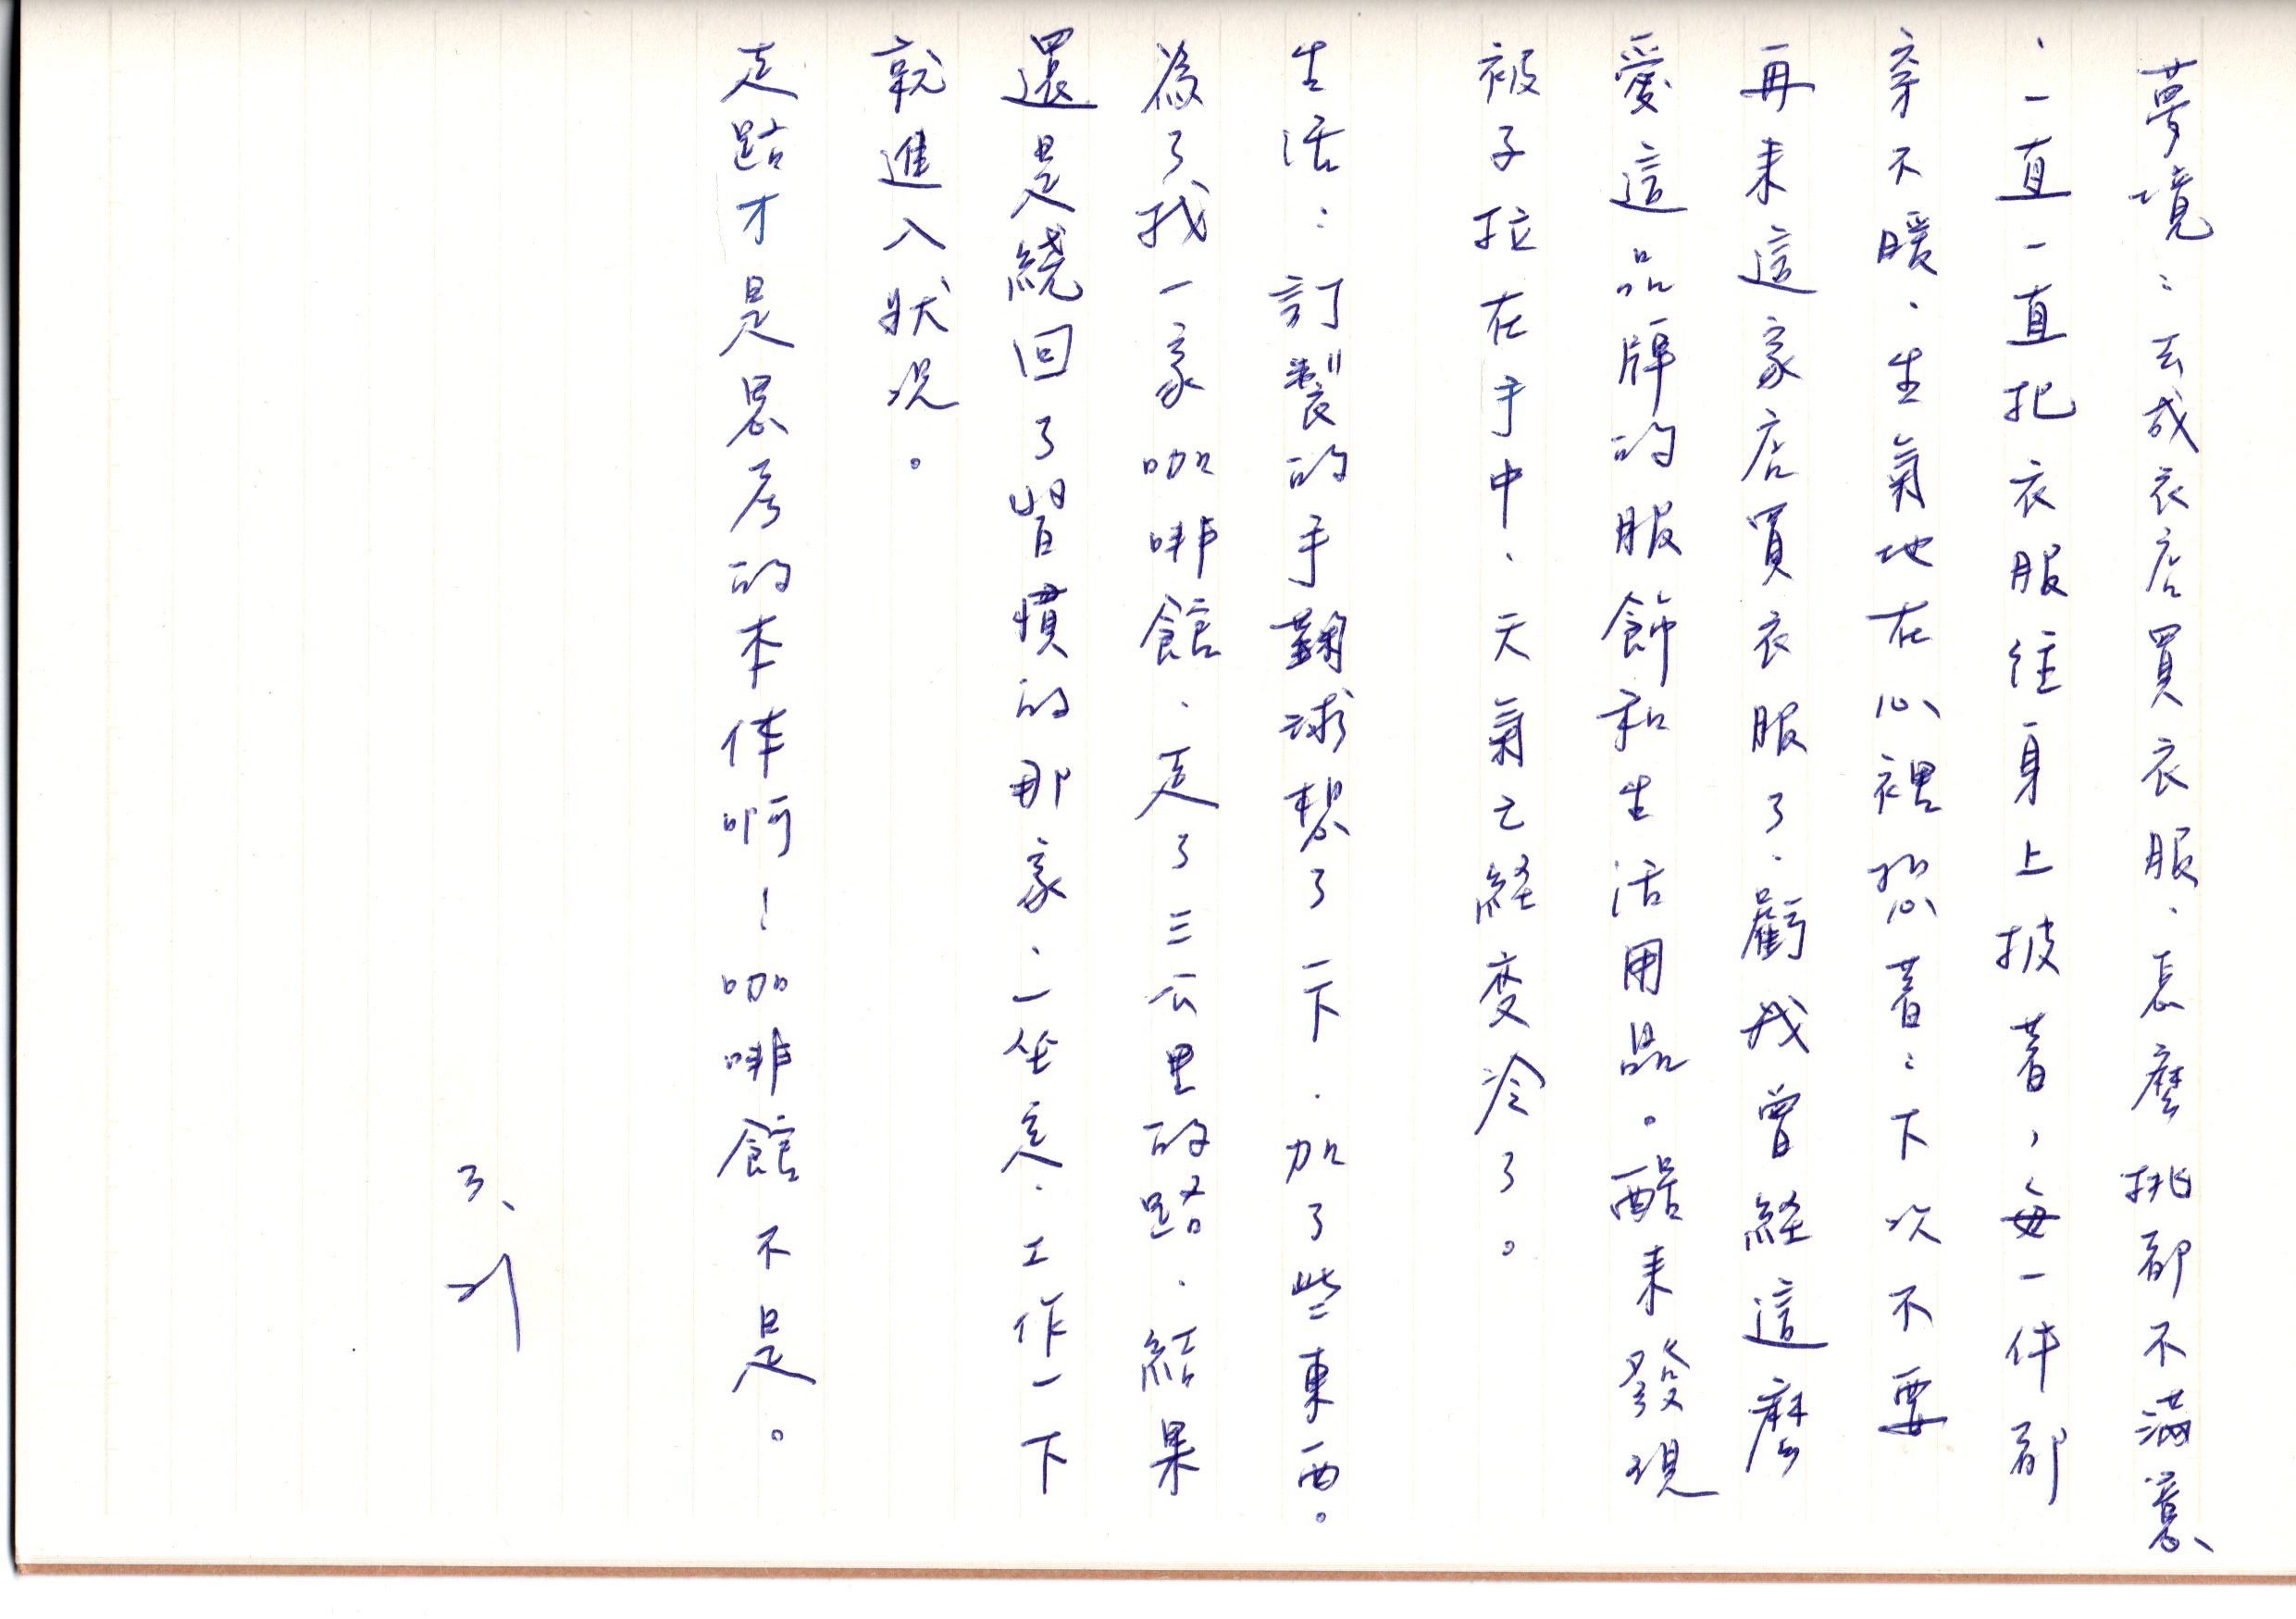 夢境：去成衣店買衣服、怎麼挑都不滿意
、一直一直把衣服往身上披著，每一件都
穿不暖、生氣地在心裡想著：下次不要
再来這家店買衣服了、虧我曾経這麼
愛這品牌的服飾和生活用品。醒来發現
被子拉在手中、天氣已経変冷了。
生活：訂製的手鞠球幫了一下、加了些東西。
為了找一家咖啡館、走了三公里的路、結果
還是繞回了習慣的那家、一坐定、工作一下
就進入狀况。
走路才是思考的本体啊！咖啡館不是。